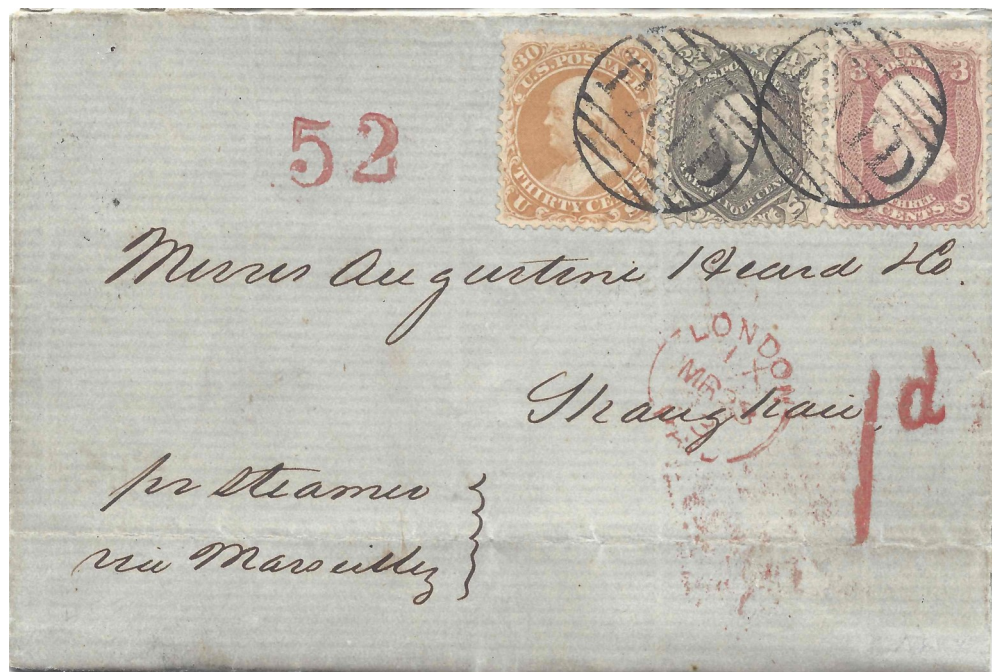 30 30
U.S. POSTAGE
THIRTY CENTS
U
24
U.S. POSTAGE
FOUR CENTS
3 3
U.S. POSTAGE
THREE CENTS
S
PAID
PAID
52
Messrs Augustine Heard & Co
LONDON
MR
Shanghai
1d
pr steamer
via Marseilles